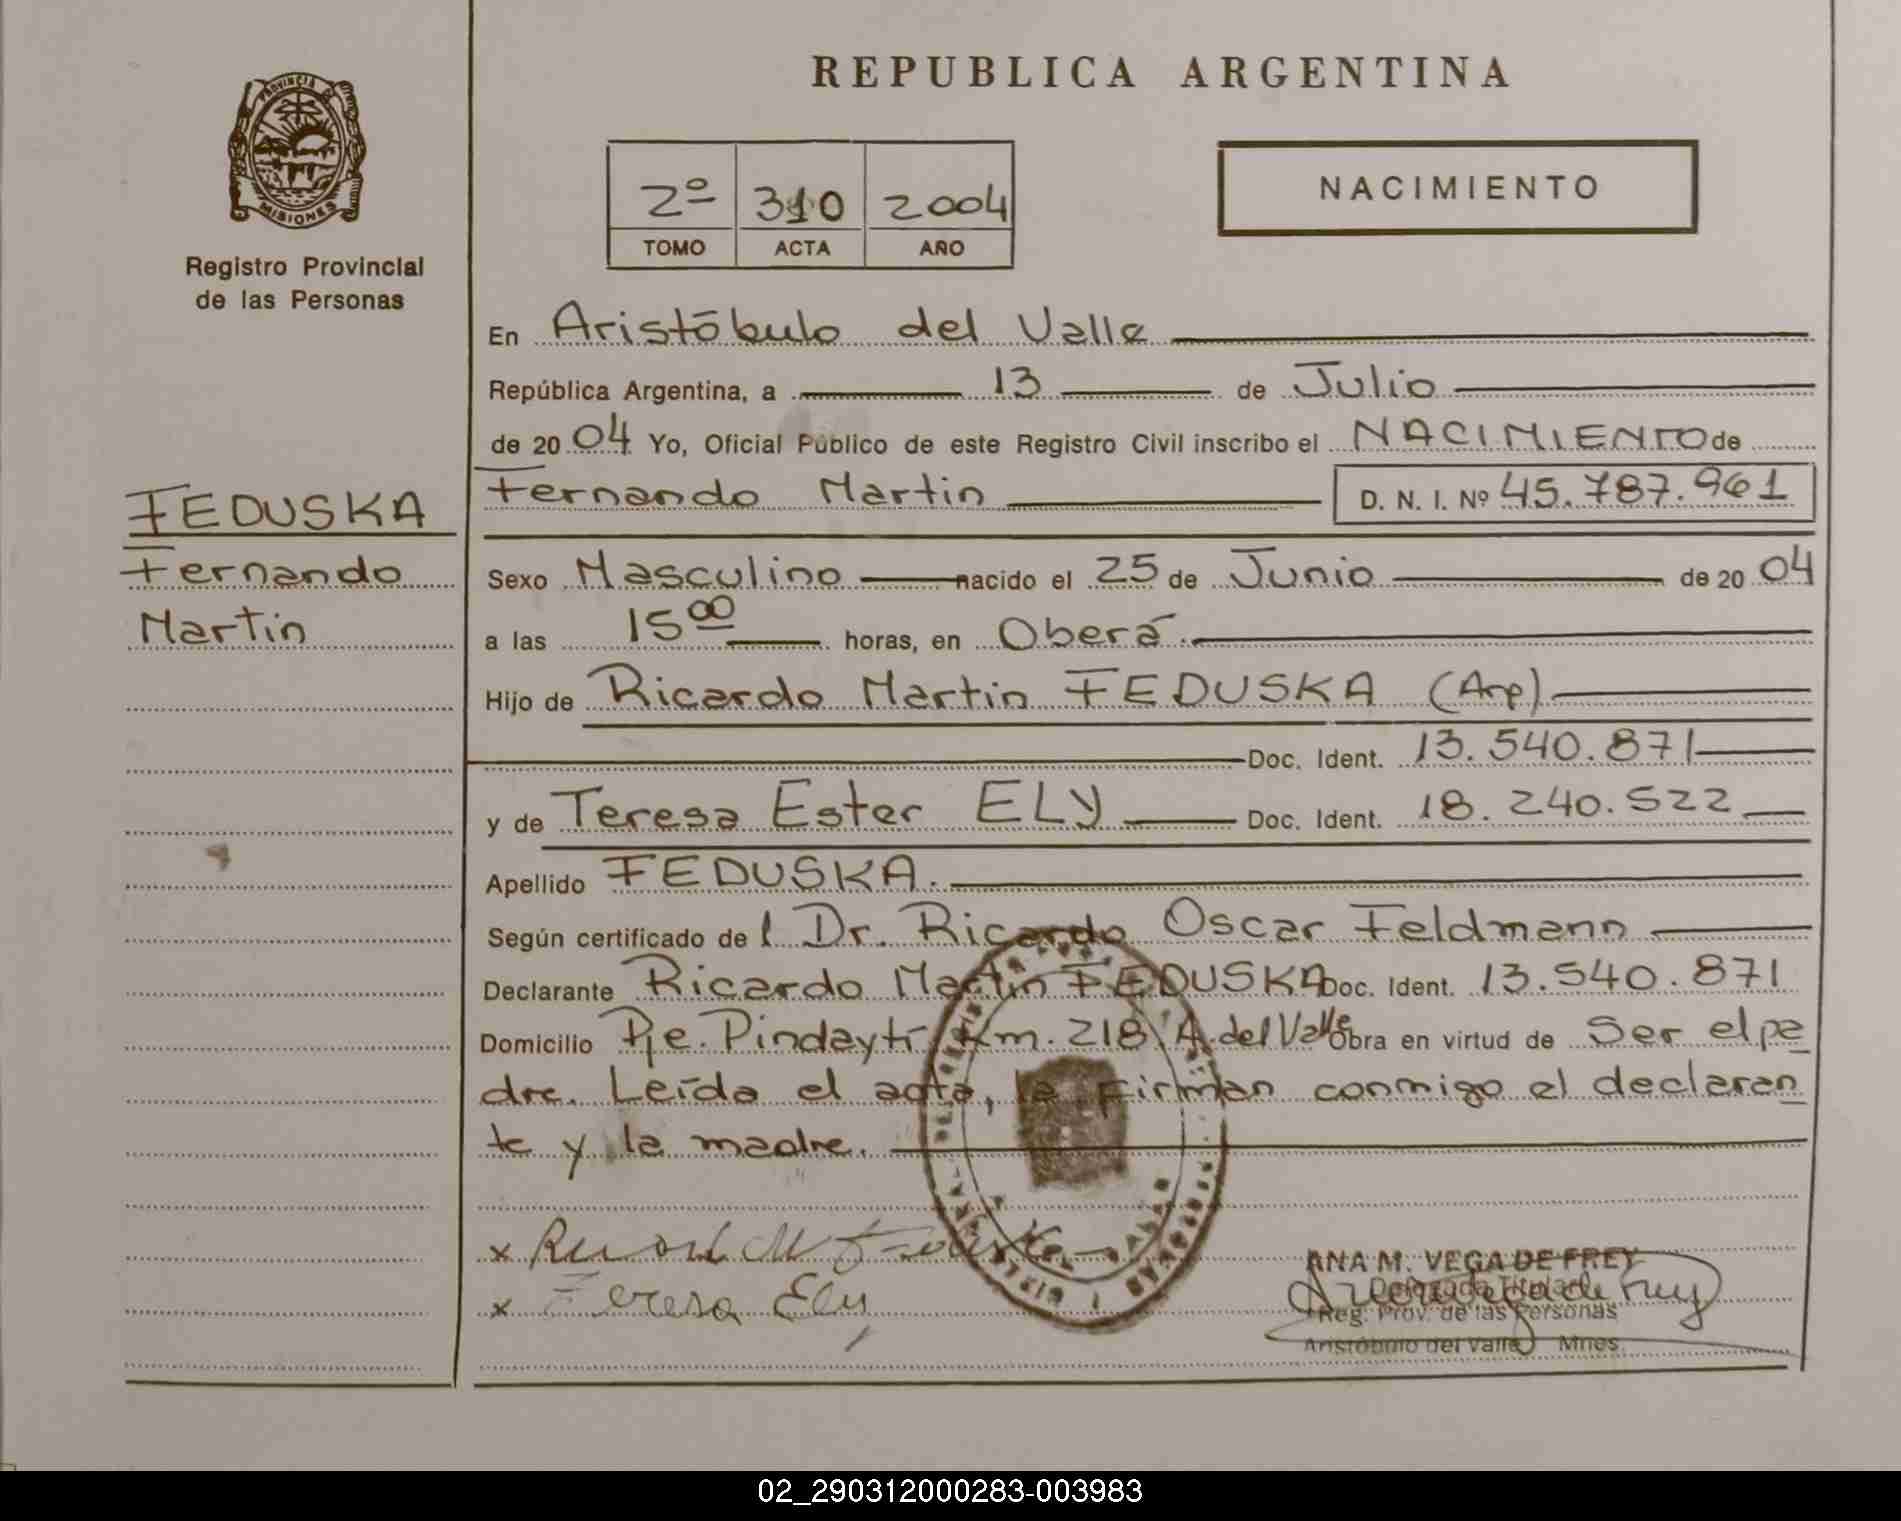 REPUBLICA ARGENTINA
PROVINCIA DE
MISIONES
Registro Provincial
de las Personas
2º 310 2004
TOMO ACTA AÑO
NACIMIENTO
En Aristóbulo del Valle
República Argentina, a 13 de Julio
de 2004 Yo, Oficial Público de este Registro Civil inscribo el NACIMIENTO de
FEDUSKA
Fernando
Martin
Fernando Martin D. N. I. Nº 45.787.961
Sexo Masculino nacido el 25 de Junio de 2004
a las 15 00 horas, en Oberá.
Hijo de Ricardo Martin FEDUSKA (Arg)
Doc. Ident. 13.540.871
y de Teresa Ester ELY Doc. Ident. 18.240.522
Apellido FEDUSKA.
Según certificado del Dr. Ricardo Oscar Feldmann
Declarante Ricardo Martin FEDUSKA Doc. Ident. 13.540.871
Domicilio Pje. Pindaytí Km. 218 A. del Valle Obra en virtud de Ser el pa
dre. Leída el acta, la firman conmigo el declaran
te y la madre.
x
x Teresa Ely
ANA M. VEGA DE FREY
Delegada Titular
Reg. Prov. de las Personas
Aristóbulo del Valle Mnes.
02_290312000283-003983